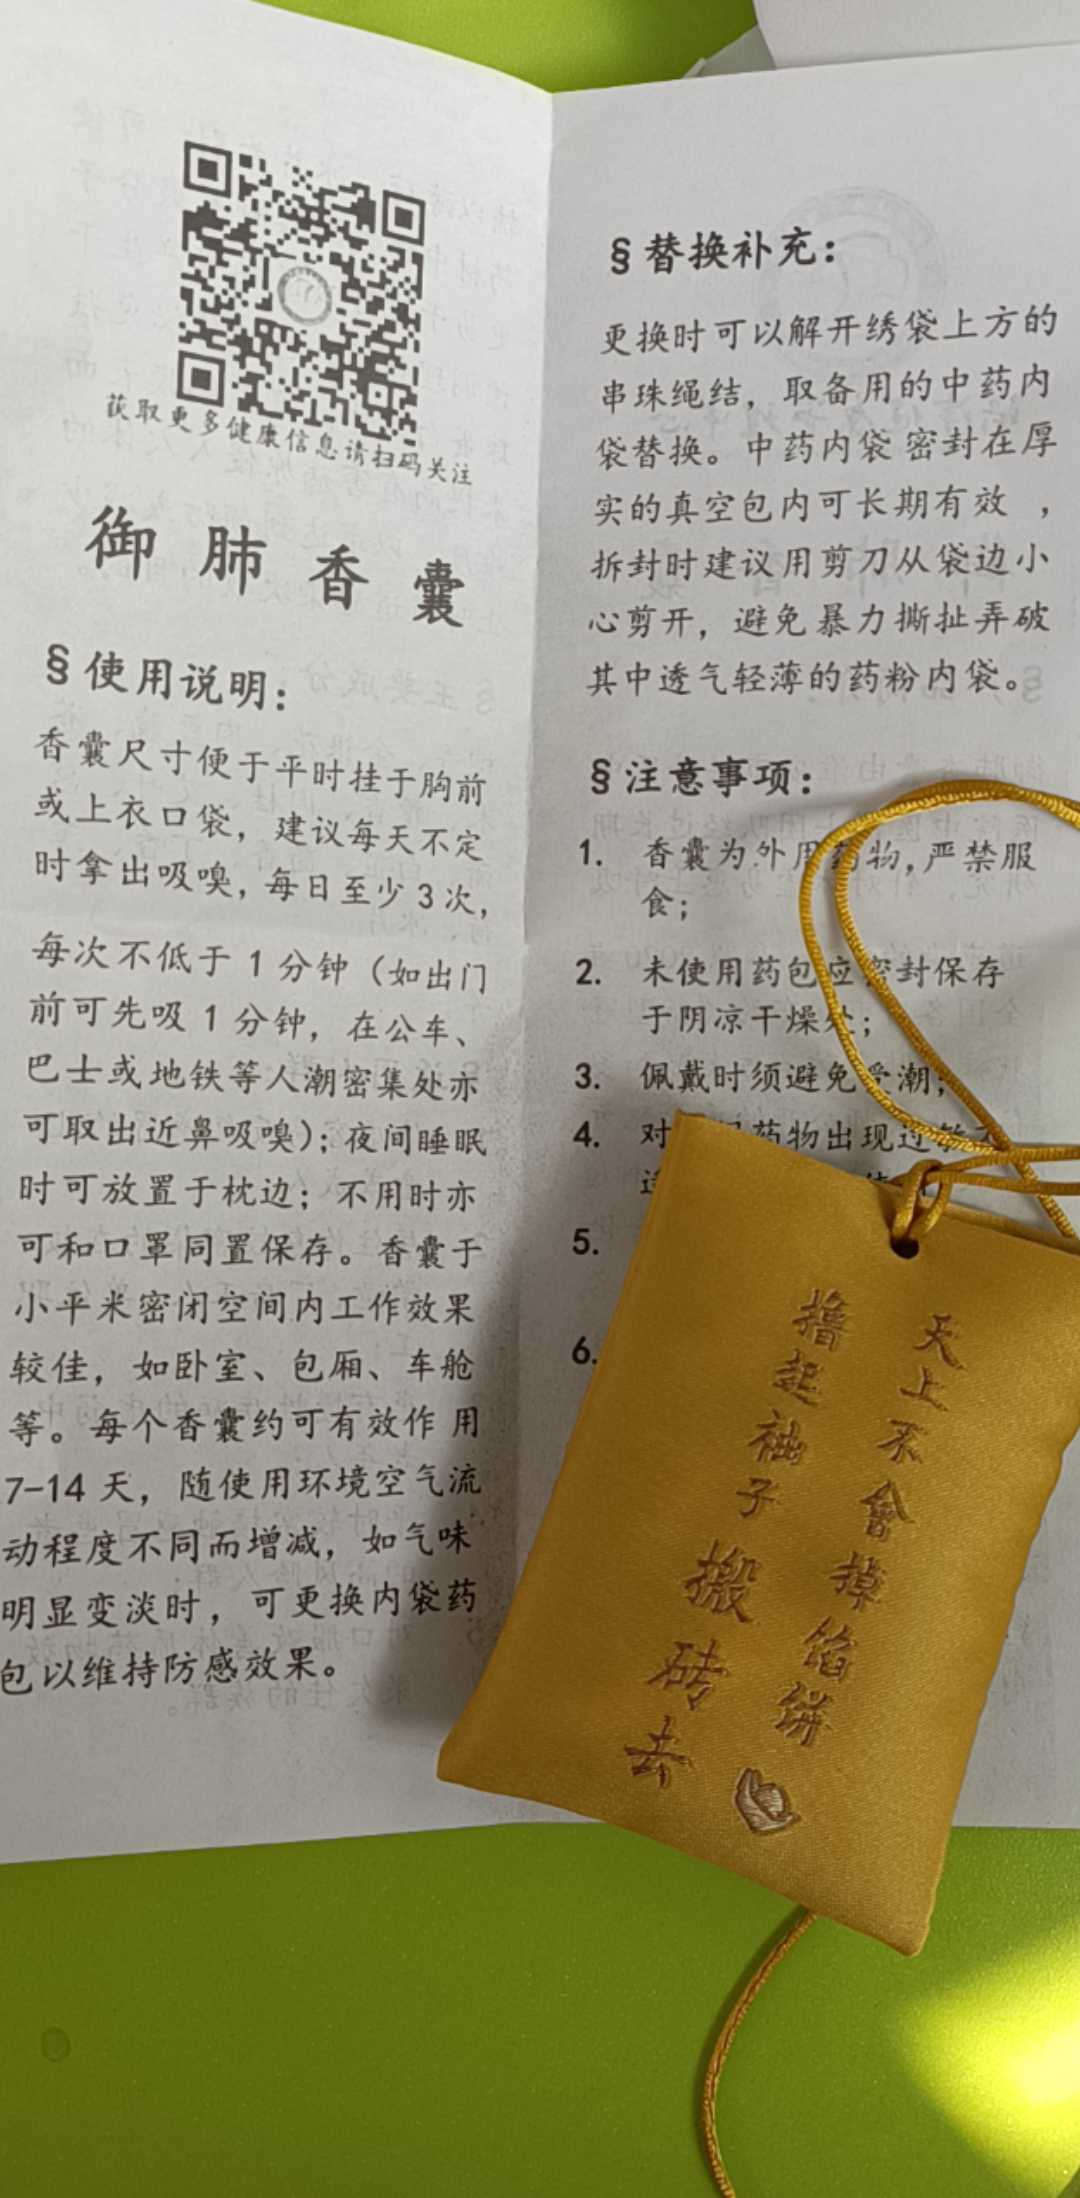 获取更多健康信息请扫码关注
御肺香囊
§使用说明：
香囊尺寸便于平时挂于胸前
或上衣口袋，建议每天不定
时拿出吸嗅，每日至少3次，
每次不低于1分钟（如出门
前可先吸1分钟，在公车、
巴士或地铁等人潮密集处亦
可取出近鼻吸嗅）；夜间睡眠
时可放置于枕边；不用时亦
可和口罩同置保存。香囊于
小平米密闭空间内工作效果
较佳，如卧室、包厢、车舱
等。每个香囊约可有效作用
7-14天，随使用环境空气流
动程度不同而增减，如气味
明显变淡时，可更换内袋药
包以维持防感效果。
§替换补充：
更换时可以解开绣袋上方的
串珠绳结，取备用的中药内
袋替换。中药内袋密封在厚
实的真空包内可长期有效，
拆封时建议用剪刀从袋边小
心剪开，避免暴力撕扯弄破
其中透气轻薄的药粉内袋。
§注意事项：
1. 香囊为外用药物，严禁服
食；
2. 未使用药包应密封保存
于阴凉干燥处；
3. 佩戴时须避免受潮；
4. 对 药物出现过敏
5.
6.
天上不會掉餡餅
撸起袖子搬砖去